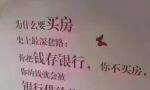 为什么要买房
史上最深套路：
你把钱存银行，你不买房，
你的钱就会被